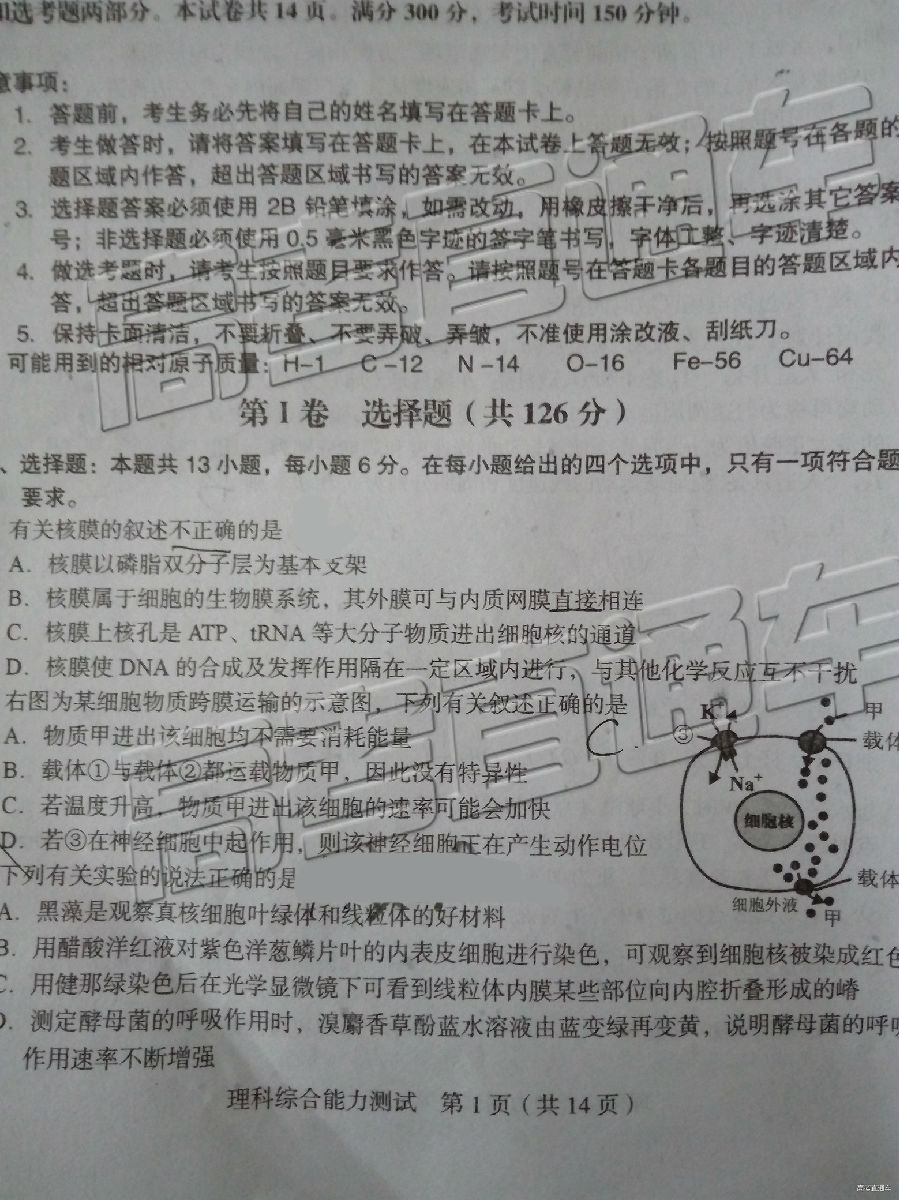 和选考题两部分。本试卷共14页。满分300分，考试时间150分钟。
意事项：
1. 答题前，考生务必先将自己的姓名填写在答题卡上。
2. 考生做答时，请将答案填写在答题卡上，在本试卷上答题无效；按照题号在各题的
题区域内作答，超出答题区域书写的答案无效。
3. 选择题答案必须使用 2B 铅笔填涂，如需改动，用橡皮擦干净后，再选涂其它答案
号；非选择题必须使用 0.5 毫米黑色字迹的签字笔书写，字体工整、字迹清楚。
4. 做选考题时，请考生按照题目要求作答。请按照题号在答题卡各题目的答题区域内
答，超出答题区域书写的答案无效。
5. 保持卡面清洁，不要折叠、不要弄破、弄皱，不准使用涂改液、刮纸刀。
可能用到的相对原子质量：H-1 C-12 N-14 O-16 Fe-56 Cu-64
第 I 卷 选择题（共 126 分）
、选择题：本题共 13 小题，每小题 6 分。在每小题给出的四个选项中，只有一项符合题
要求。
有关核膜的叙述不正确的是
A．核膜以磷脂双分子层为基本支架
B．核膜属于细胞的生物膜系统，其外膜可与内质网膜直接相连
C．核膜上核孔是 ATP、tRNA 等大分子物质进出细胞核的通道
D．核膜使 DNA 的合成及发挥作用隔在一定区域内进行，与其他化学反应互不干扰
右图为某细胞物质跨膜运输的示意图，下列有关叙述正确的是
C.
A．物质甲进出该细胞均不需要消耗能量
B．载体①与载体②都运载物质甲，因此没有特异性
C．若温度升高，物质甲进出该细胞的速率可能会加快
D．若③在神经细胞中起作用，则该神经细胞正在产生动作电位
K⁺
甲
③
载体
Na⁺
细胞核
载体
细胞外液
甲
下列有关实验的说法正确的是
A．黑藻是观察真核细胞叶绿体和线粒体的好材料
B．用醋酸洋红液对紫色洋葱鳞片叶的内表皮细胞进行染色，可观察到细胞核被染成红色
C．用健那绿染色后在光学显微镜下可看到线粒体内膜某些部位向内腔折叠形成的嵴
D．测定酵母菌的呼吸作用时，溴麝香草酚蓝水溶液由蓝变绿再变黄，说明酵母菌的呼吸
作用速率不断增强
理科综合能力测试 第 1 页（共 14 页）
高考直通车
高考直通车
高考直通车